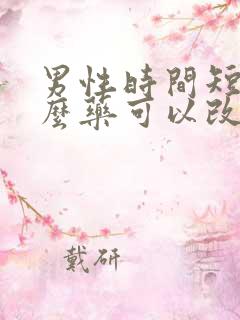 男性時間短
麼藥可以改
戴研